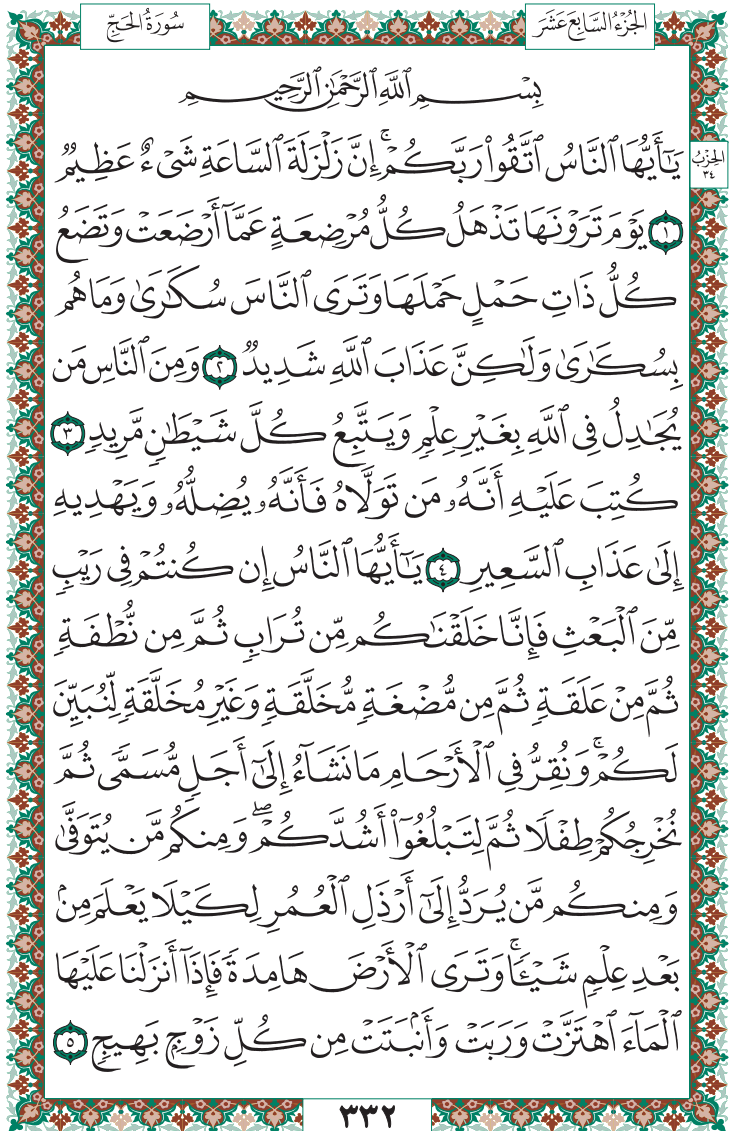 الجُزْءُ السَّابِعَ عَشَرَ
سُورَةُ الحَجِّ
بِسْمِ ٱللَّهِ ٱلرَّحْمَٰنِ ٱلرَّحِيمِ
يَٰٓأَيُّهَا ٱلنَّاسُ ٱتَّقُوا۟ رَبَّكُمْ ۚ إِنَّ زَلْزَلَةَ ٱلسَّاعَةِ شَىْءٌ عَظِيمٌ
الحِزْبُ ٣٤
١ يَوْمَ تَرَوْنَهَا تَذْهَلُ كُلُّ مُرْضِعَةٍ عَمَّآ أَرْضَعَتْ وَتَضَعُ
كُلُّ ذَاتِ حَمْلٍ حَمْلَهَا وَتَرَى ٱلنَّاسَ سُكَٰرَىٰ وَمَا هُم
بِسُكَٰرَىٰ وَلَٰكِنَّ عَذَابَ ٱللَّهِ شَدِيدٌ ٢ وَمِنَ ٱلنَّاسِ مَن
يُجَٰدِلُ فِى ٱللَّهِ بِغَيْرِ عِلْمٍ وَيَتَّبِعُ كُلَّ شَيْطَٰنٍ مَّرِيدٍ ٣
كُتِبَ عَلَيْهِ أَنَّهُۥ مَن تَوَلَّاهُ فَأَنَّهُۥ يُضِلُّهُۥ وَيَهْدِيهِ
إِلَىٰ عَذَابِ ٱلسَّعِيرِ ٤ يَٰٓأَيُّهَا ٱلنَّاسُ إِن كُنتُمْ فِى رَيْبٍ
مِّنَ ٱلْبَعْثِ فَإِنَّا خَلَقْنَٰكُم مِّن تُرَابٍ ثُمَّ مِن نُّطْفَةٍ
ثُمَّ مِنْ عَلَقَةٍ ثُمَّ مِن مُّضْغَةٍ مُّخَلَّقَةٍ وَغَيْرِ مُخَلَّقَةٍ لِّنُبَيِّنَ
لَكُمْ ۚ وَنُقِرُّ فِى ٱلْأَرْحَامِ مَا نَشَآءُ إِلَىٰٓ أَجَلٍ مُّسَمًّى ثُمَّ
نُخْرِجُكُمْ طِفْلًا ثُمَّ لِتَبْلُغُوٓا۟ أَشُدَّكُمْ ۖ وَمِنكُم مَّن يُتَوَفَّىٰ
وَمِنكُم مَّن يُرَدُّ إِلَىٰٓ أَرْذَلِ ٱلْعُمُرِ لِكَيْلَا يَعْلَمَ مِنۢ
بَعْدِ عِلْمٍ شَيْـًٔا ۚ وَتَرَى ٱلْأَرْضَ هَامِدَةً فَإِذَآ أَنزَلْنَا عَلَيْهَا
ٱلْمَآءَ ٱهْتَزَّتْ وَرَبَتْ وَأَنۢبَتَتْ مِن كُلِّ زَوْجٍۭ بَهِيجٍ ٥
٣٣٢